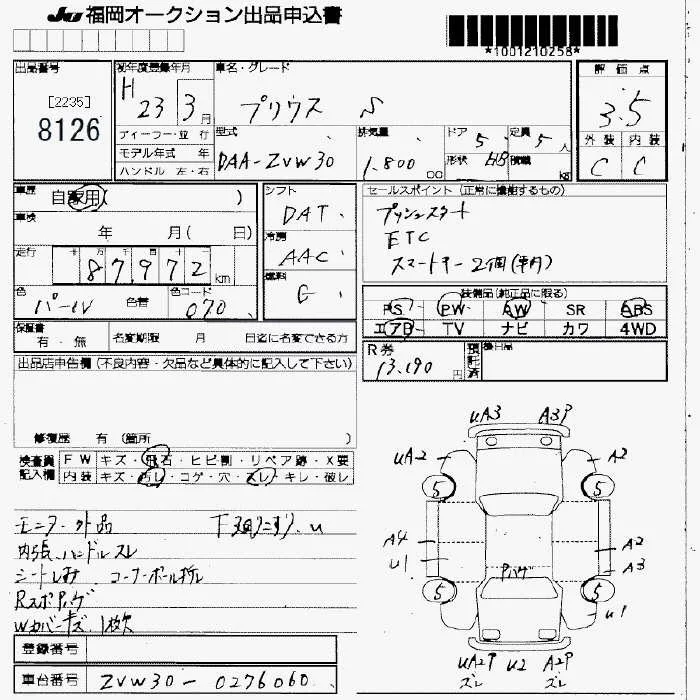 JU 福岡オークション出品申込書
*1001210258*
出品番号
[2235]
8126
初年度登録年月
H 23 3月
車名・グレード
プリウス S
評価点
3.5
外装 内装
C C
ディーラー・並 行
モデル年式 年
ハンドル 左・右
型式
DAA-ZVW30
排気量
1.800 cc
ドア 5
定員 5 人
形状 HB
積載 kg
車歴
自家用( )
車検
年 月( 日)
走行
十 万 千 百 十 一
87,972 km
色
パール
色替
色コード
070
シフト
DAT
冷房
AAC
燃料
G
セールスポイント (正常に機能するもの)
プッシュスタート
ETC
スマートキー2個(車内)
装備品(純正品に限る)
PS PW AW SR ABS
エアB TV ナビ カワ 4WD
保証書
有・無
名変期限 月 日迄に名変できる方
R券
13.190 円
預託済
後日品
出品店申告欄(不良内容・欠品など具体的に記入して下さい)
修復歴 有 (箇所 )
検査員記入欄
FW キズ・飛石・ヒビ割・リペア跡・X要
内装 キズ・汚レ・コゲ・穴・スレ・キレ・破レ
モニター外品 下廻りこすり.u
内張.ハンドルスレ
シートしみ コーナーポール折
RスポPハゲ
Wカバーキズ.1枚欠
登録番号
車台番号
ZVW30-0276060
UA3 A3P
UA2 A2
5 5
A4 A2
U1 A3
Pハゲ
5 5
U1
UA2P U2 A2P
ズレ ズレ